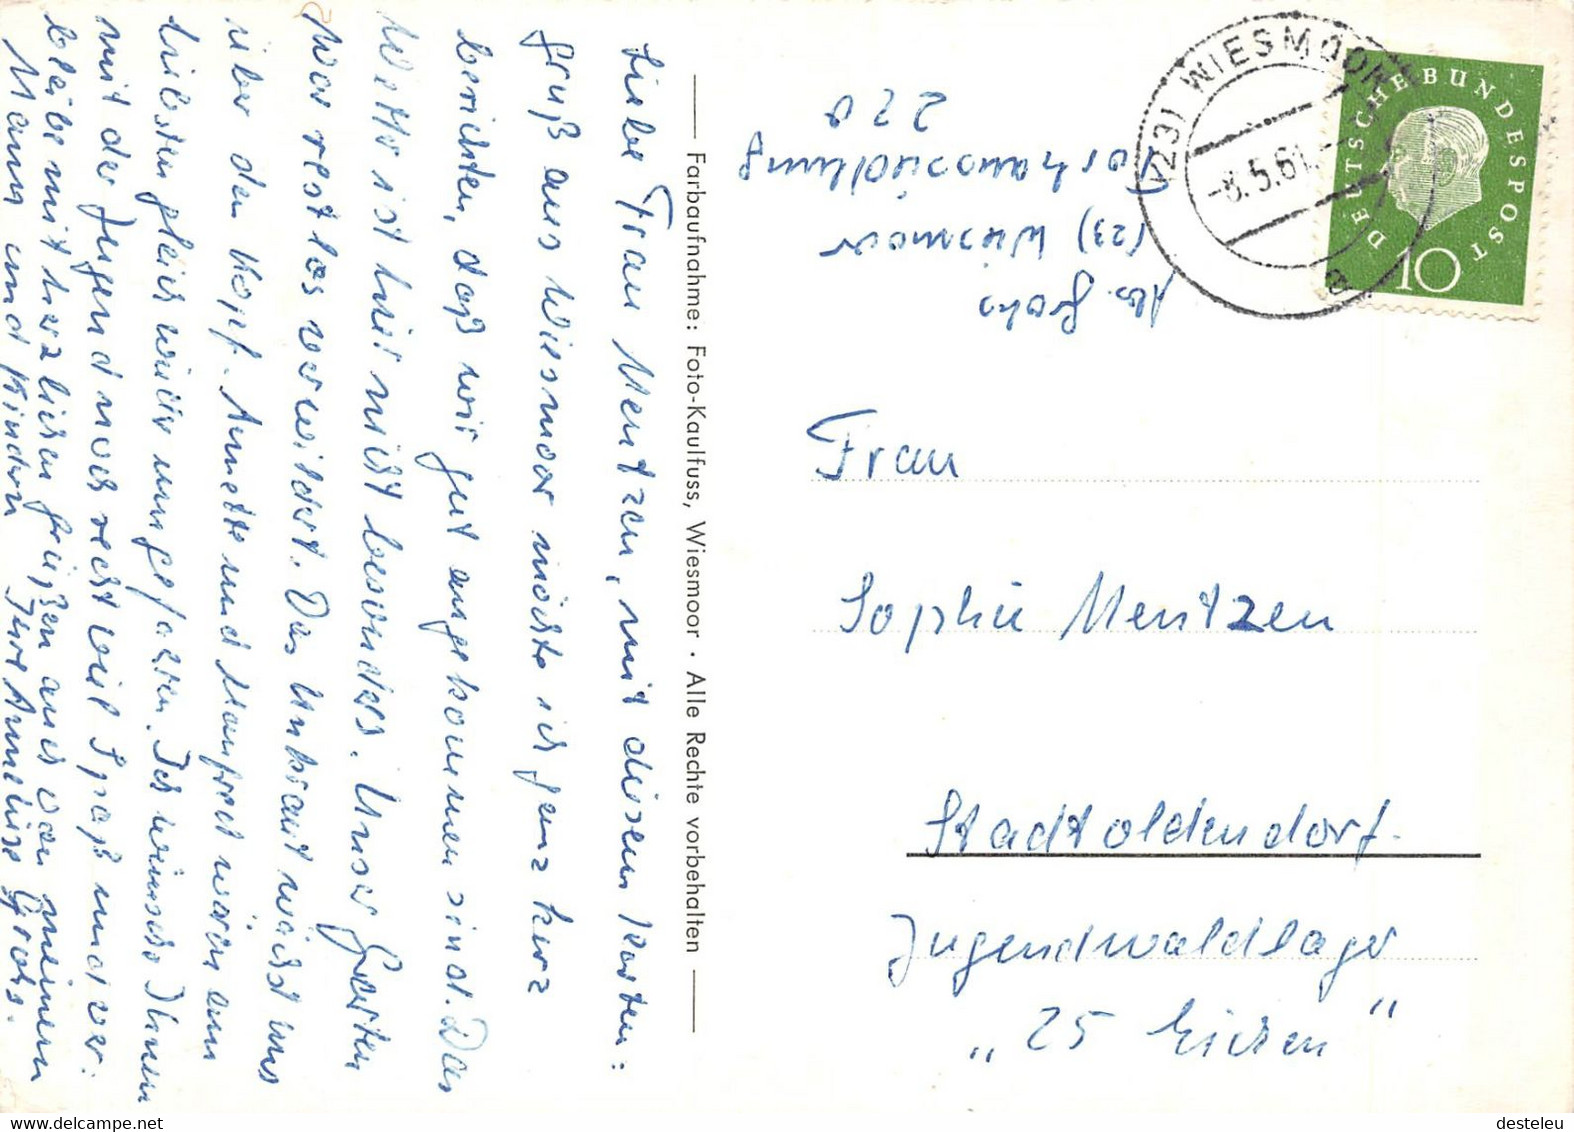 Liebe Frau Mentzen, mit diesem Karten:
gruß aus Wiesmoor möchte ich ganz kurz
berichten, daß wir gut angekommen sind. Das
Wetter ist hier nicht besonders. Unser Garten
war restlos verwildert. Das Unkraut wächst uns
über den Kopf. Annette und Manfred wären am
liebsten gleich wieder umgefahren. Ich wünsche Ihnen
mit der Jugend noch recht viel Spaß und ver:
bleibe mit herzlichen Grüßen auch von meinem
Mann und Kindern Ihre Anneliese Grohs.
Farbaufnahme: Foto-Kaulfuss, Wiesmoor · Alle Rechte vorbehalten
Abs. Grohs
(23) Wiesmoor
220
(23) WIESMOOR
-8.5.61.-
a
DEUTSCHE BUNDESPOST
10
Frau
Sophie Mentzen
Stadtoldendorf.
Jugendwaldlager
„25 Eichen"
desteleu